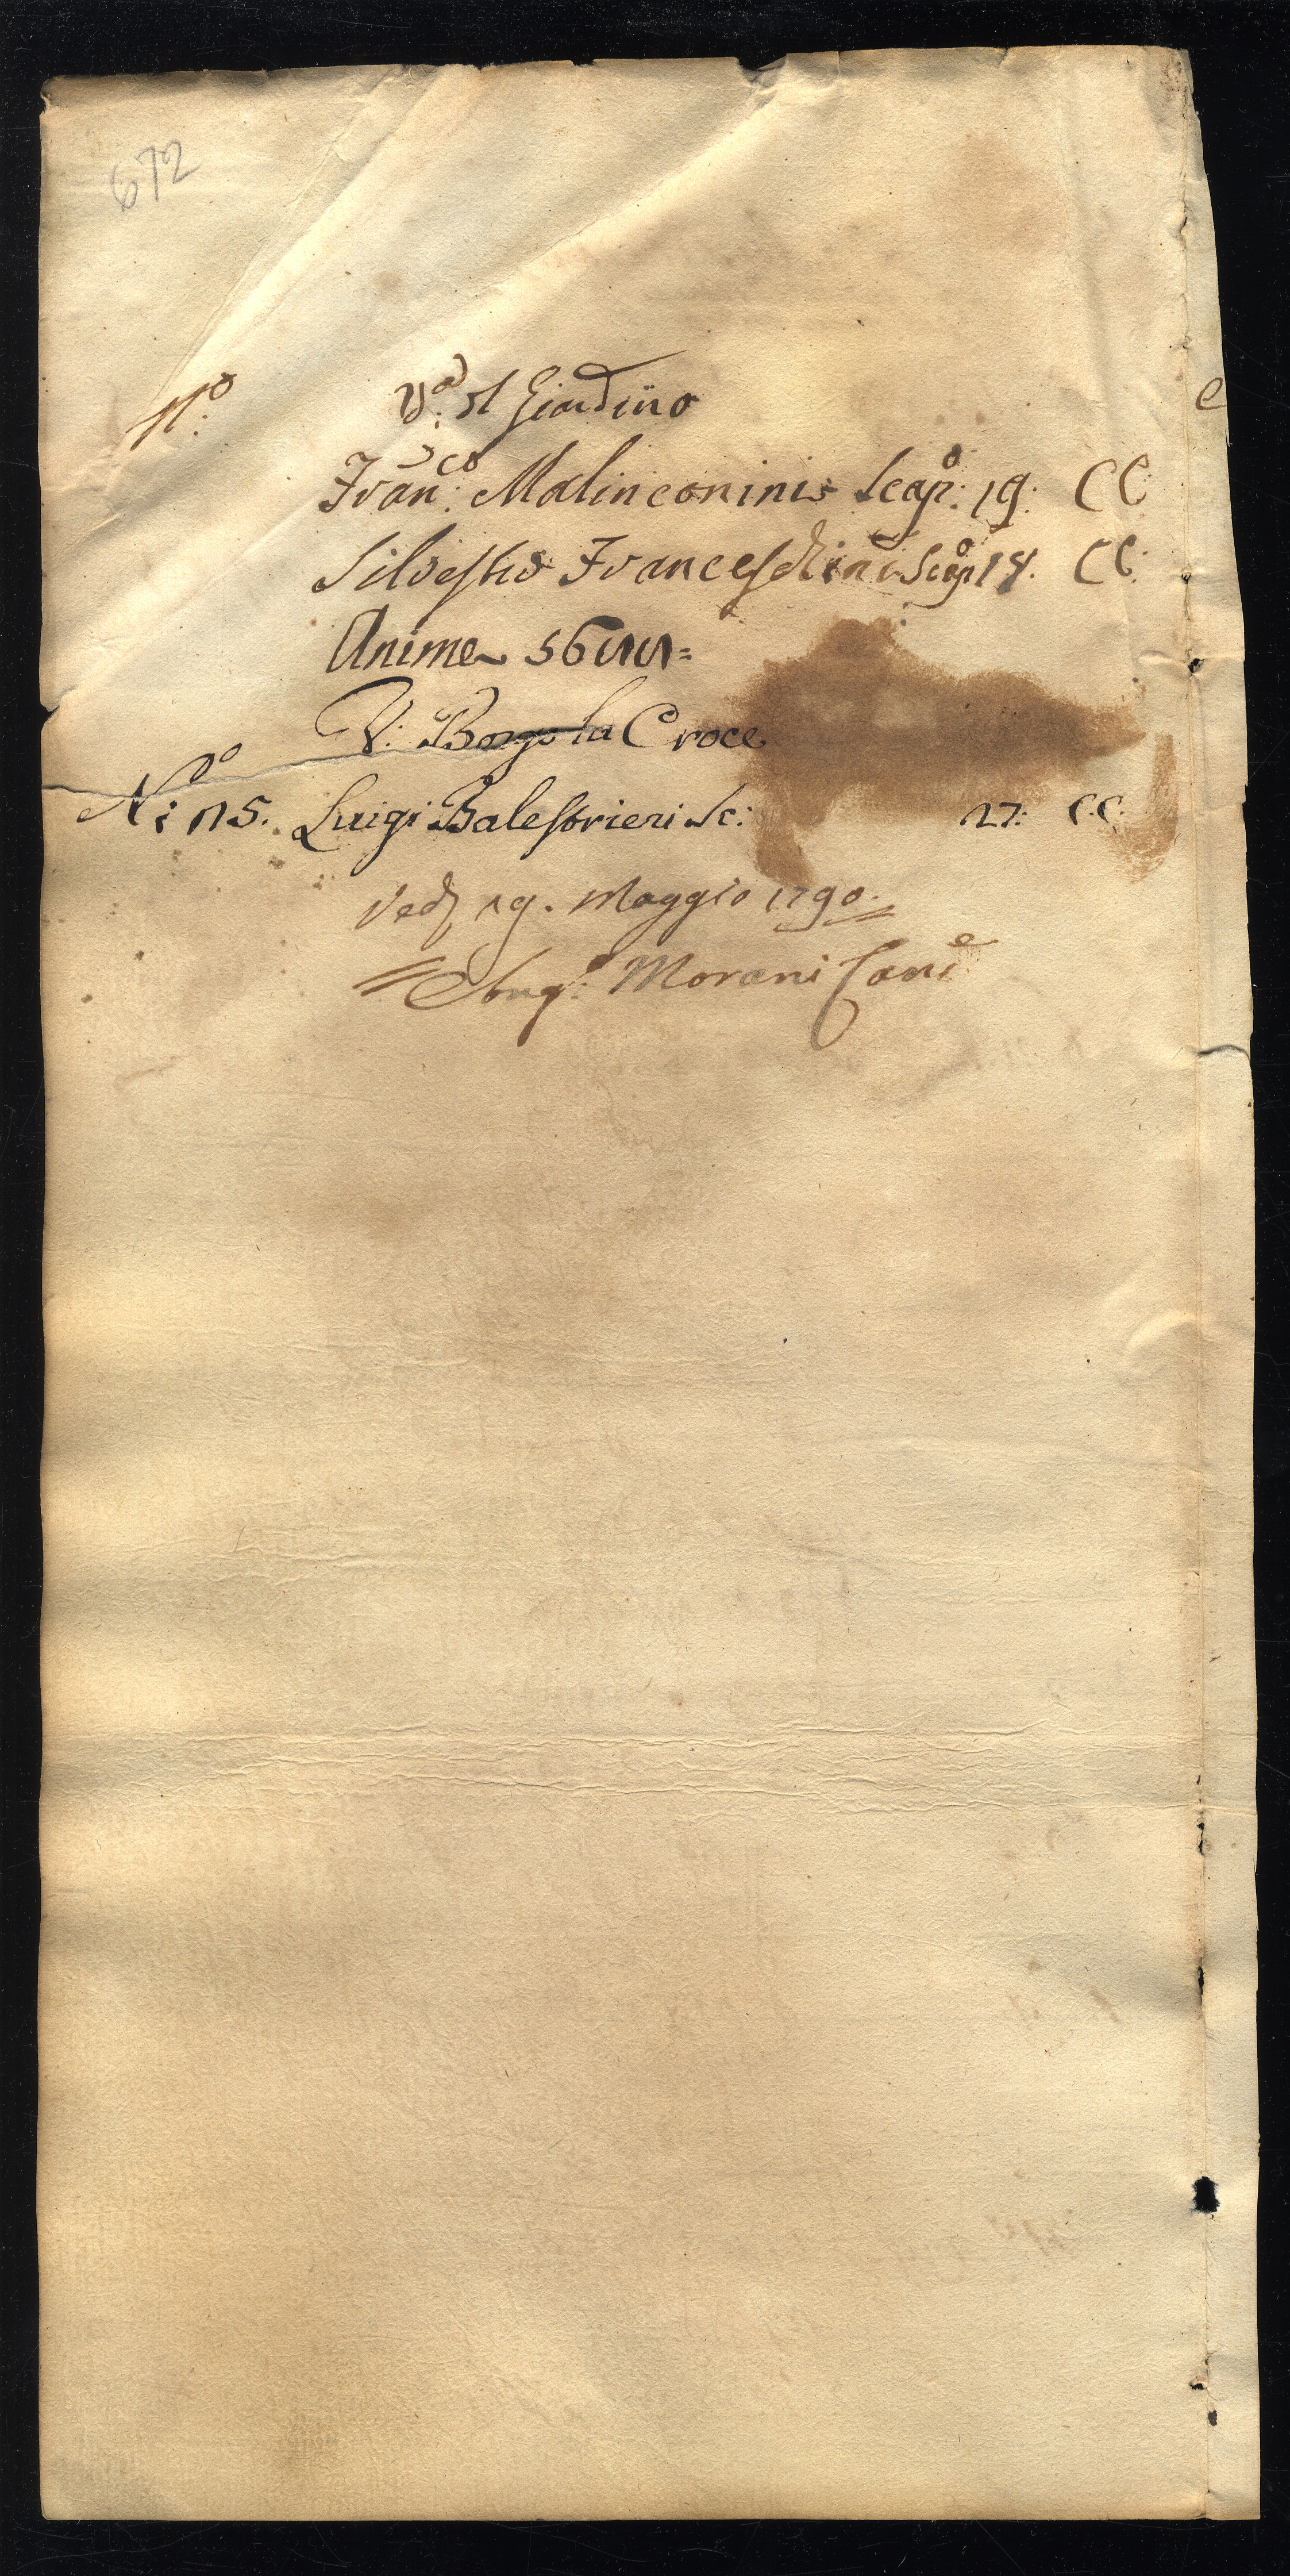 672
N.o V.a il Giardino
Fran.co Malinconini Scap.o 19. CC
Silvestro Franceschini Scap.o 18. CC.
Anime
V: Borgo la Croce
N.o 15. Luigi Balestrieri Sc: 27: C.C.
Ved 19. Maggio 1790.
Ang.o Morani